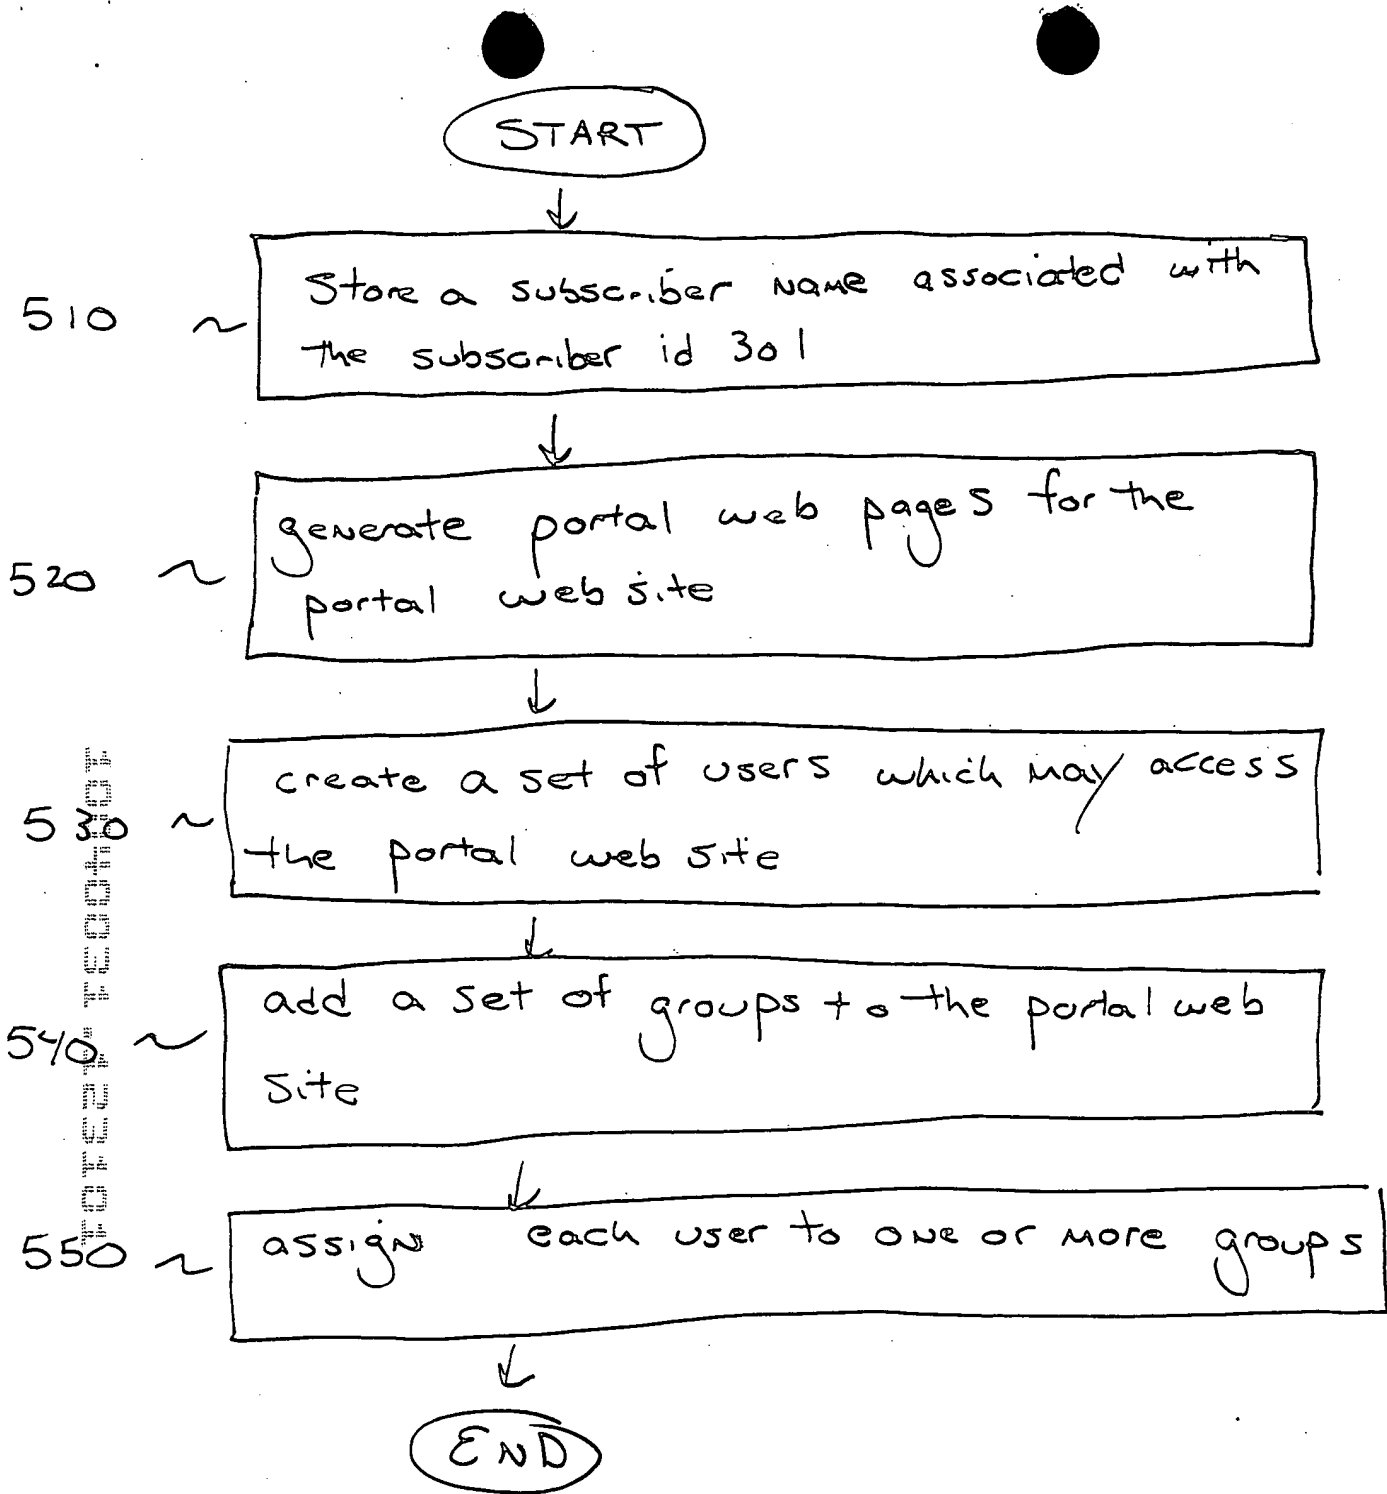 START
510 ~ Store a subscriber name associated with
the subscriber id 301
generate portal web pages for the
520 ~
portal web site
create a set of users which may access
530 ~
the portal web site
add a set of groups to the portal web
540 ~
site
550 ~ assign each user to one or more groups
END
10040031 .123101